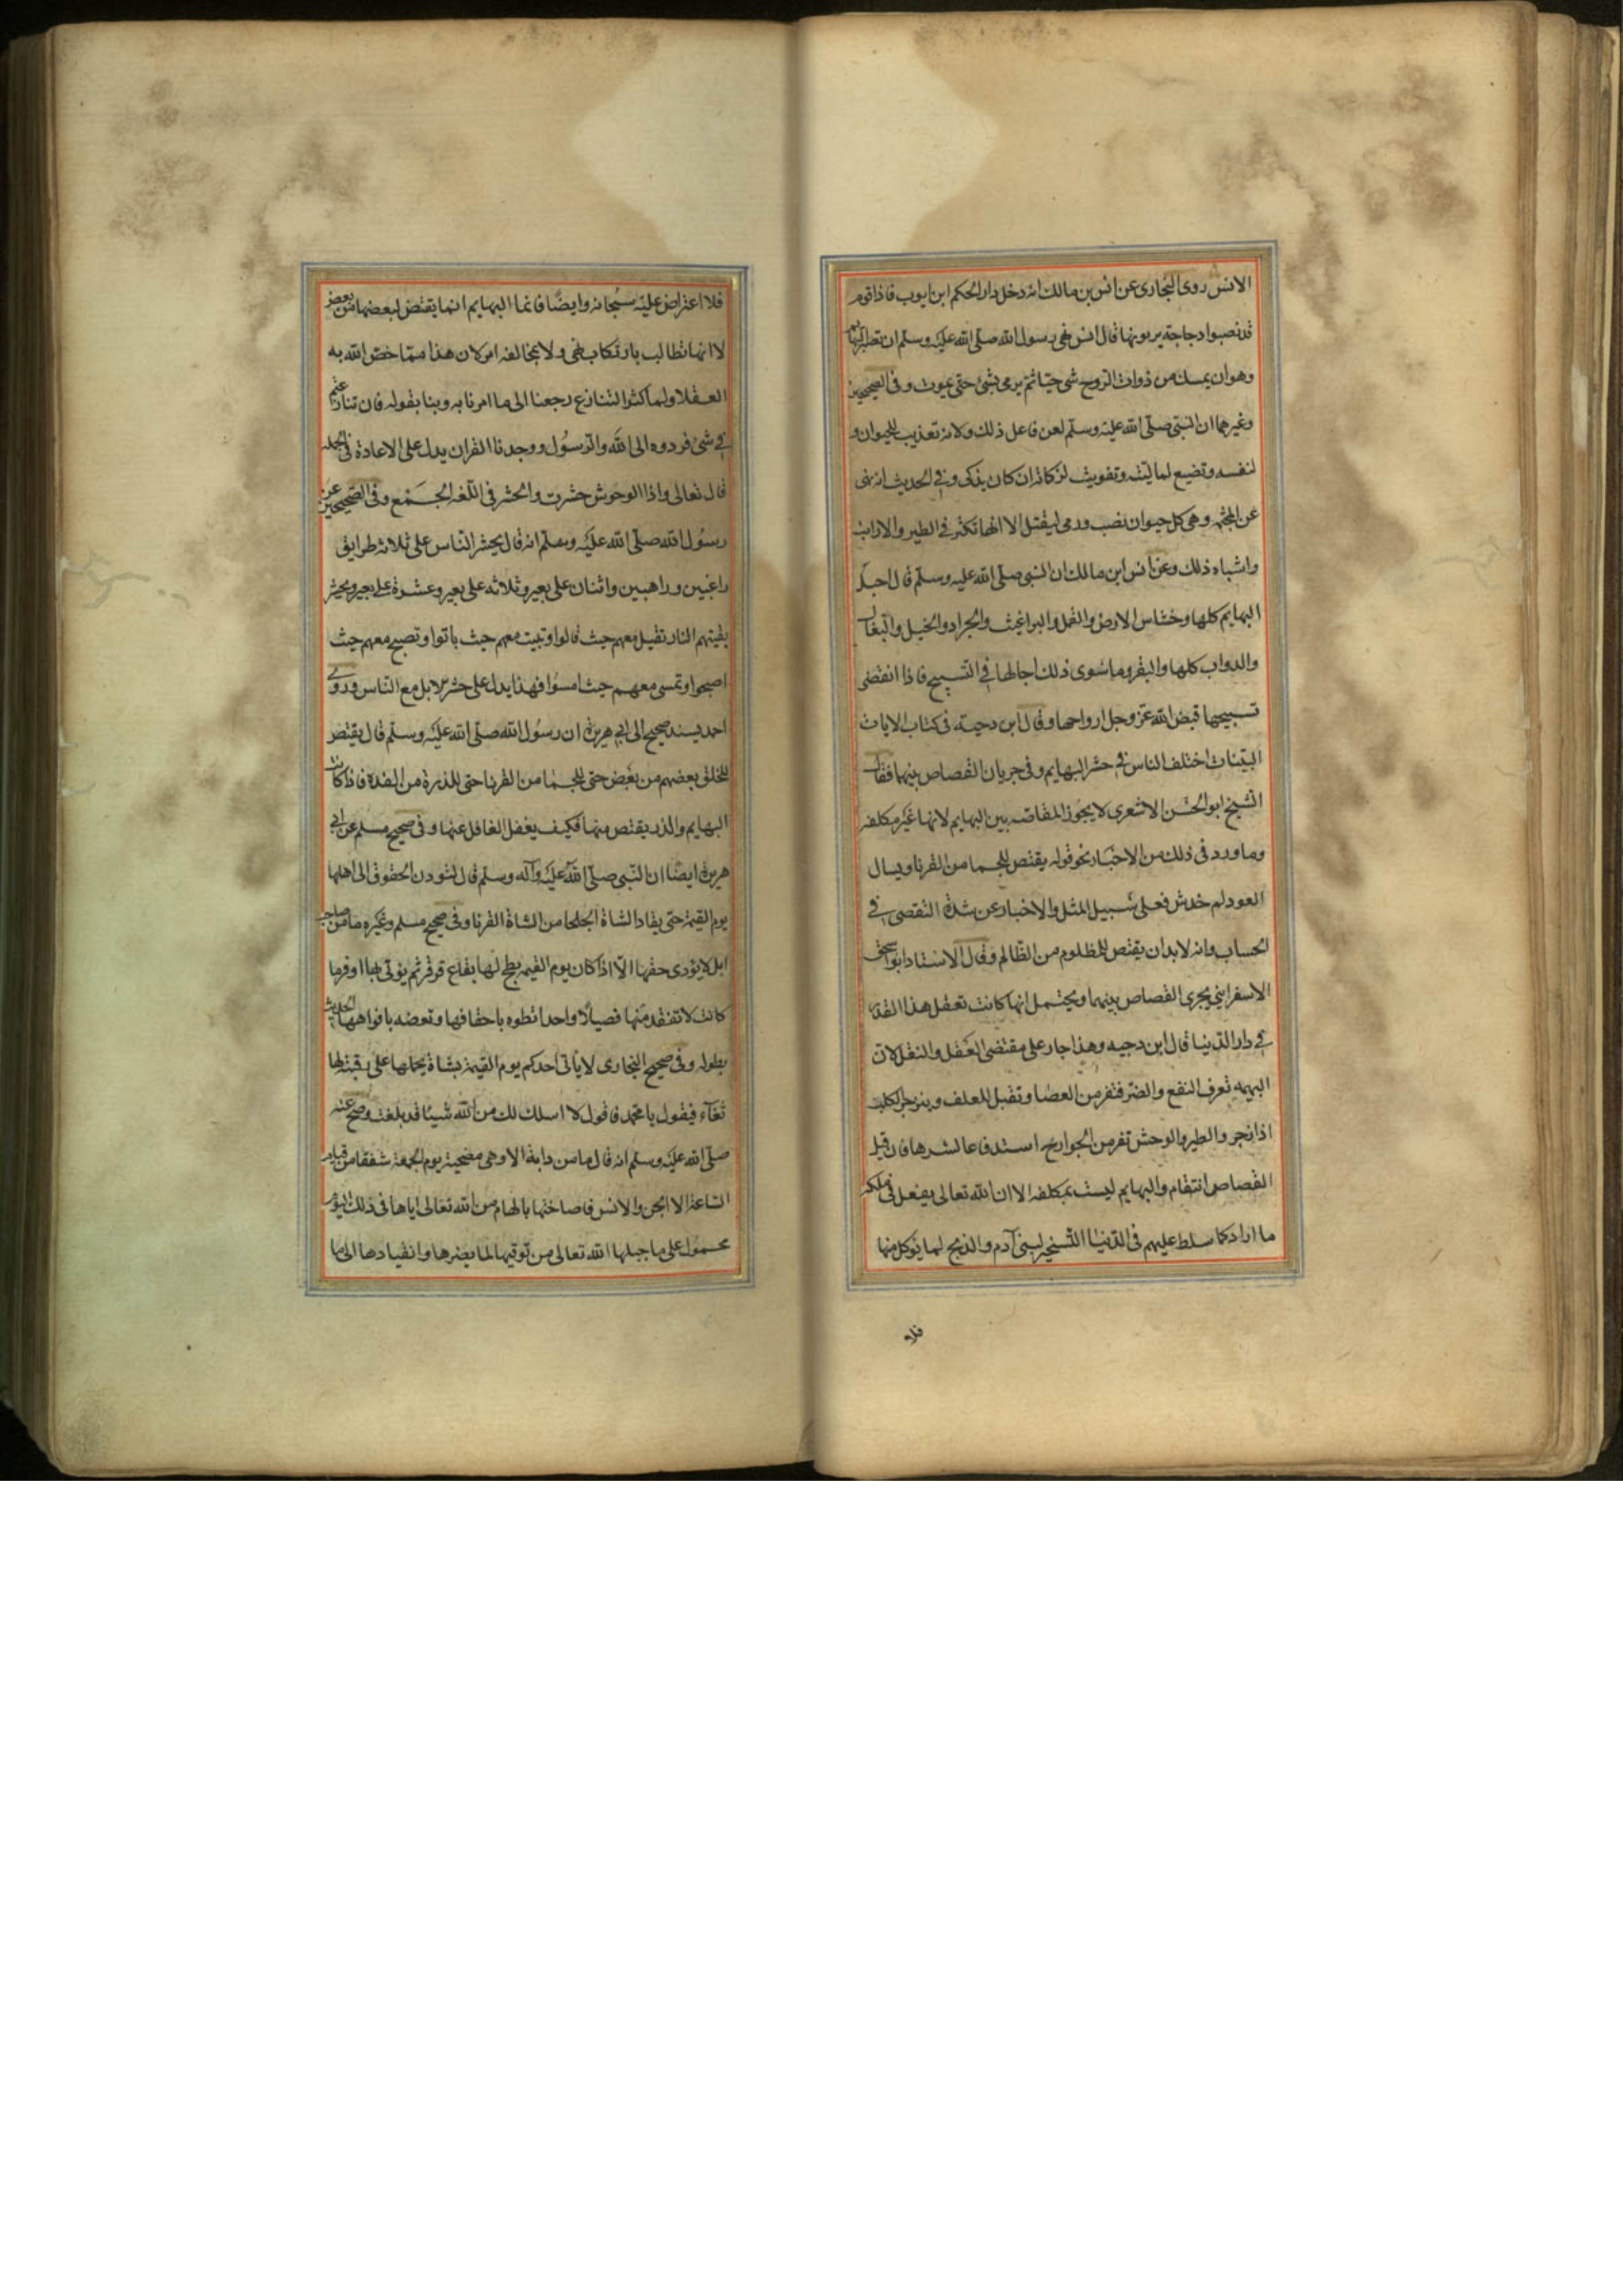 الانس روى البخارى عن انس بن مالك انه دخل دار الحكم ابن ايوب فاذا قوم
قد نصبوا دجاجة يرمونها فقال انس نهى رسول الله صلى الله عليه وسلم ان تصبر البهايم
وهو ان يمسك من ذوات الروح شى حيا ثم يرمى بشئ حتى يموت وفى الصحيحين
وغيرهما ان النبى صلى الله عليه وسلم لعن فاعل ذلك ولانه تعذيب للحيوان و
لنفسه وتضيع لماليته وتفويت لزكاته ان كان يذكى وفى الحديث انه نهى
عن المجثمه وهى كل حيوان نصب ورمى ليقتل الا انها تكثر فى الطير والارانب
واشباه ذلك وعن انس ابن مالك ان النبى صلى الله عليه وسلم قال اجل
البهايم كلها وخشاش الارض والقمل والبراغيث والجراد والخيل والبغال
والدواب كلها والبقر وما سوى ذلك اجالها فى التسبيح فاذا انقضى
تسبيحها قبض الله عز وجل ارواحها وقال ابن دحيه فى كتاب الايات
البينات اختلف الناس فى حشر البهايم وفى جريان القصاص بينهما فقال
الشيخ ابو الحسن الاشعرى لا يجوز المقاصه بين البهايم لانها غير مكلفه
وما ورد فى ذلك من الاخبار نحو قوله يقتص للجما من القرنا ويسال
العود لم خدش فعلى سبيل المثل والاخبار عن شدة التقصى فى
الحساب وانه لابد ان يقتص للمظلوم من الظالم وقال الاستاد ابو اسحق
الاسفراينى يجرى القصاص بينهما ويحتمل انها كانت تعقل هذا القدر
فى دار الدنيا قال ابن دحيه وهذا جار على مقتضى العقل والنقل لان
البهيمه تعرف النفع والضر فتنفر من العصا وتقبل للعلف وينزجر الكلب
اذا زجر والطير والوحش تفر من الجوارح استدفاعا لشرها فان قيل
القصاص انتقام والبهايم ليست بمكلفه الا ان الله تعالى يفعل فى ملكه
ما اراد كما سلط عليهم فى الدنيا التسخير لبنى آدم والذبح لما يؤكل منها
فلا
فلا اعتراض عليه سبحانه وايضا فانما البهايم انما يقتص لبعضها من بعض
لا انها تطالب بارتكاب نهى ولا بمخالفه امر لان هذا مما خص الله به
العقلا ولما كثر التنازع رجعنا الى ما امرنا به ربنا بقوله فان تنازعتم
فى شئ فردوه الى الله والرسول ووجدنا القران يدل على الاعادة فى الجمله
قال تعالى واذا الوحوش حشرت والحشر فى اللغه الجمع وفى الصحيحين عن
رسول الله صلى الله عليه وسلم انه قال يحشر الناس على ثلاثه طرايق
راغبين وراهبين واثنان على بعير وثلاثه على بعير وعشرة على بعير ويحشر
بقيتهم النار تقيل معهم حيث قالوا وتبيت معهم حيث باتوا وتصبح معهم حيث
اصبحوا وتمسى معهم حيث امسوا فهذا يدل على حشر الابل مع الناس وروى
احمد بسند صحيح الى ابى هريرة ان رسول الله صلى الله عليه وسلم قال يقتص
للخلق بعضهم من بعض حتى للجما من القرنا حتى للذرة من الذرة فاذا كانت
البهايم والذر يقتص منها فكيف يغفل الغافل عنها وفى صحيح مسلم عن ابى
هريرة ايضا ان النبى صلى الله عليه وآله وسلم قال لتودن الحقوق الى اهلها
يوم القيمة حتى يقاد الشاة الجلحا من الشاة القرنا وفى صحيح مسلم وغيره ما من صاحب
ابل لا يؤدى حقها الا اذا كان يوم القيمه بطح لها بقاع قرقر ثم يؤتى بها اوفر ما
كانت لا تفقد منها فصيلا واحدا تطوه باخفافها وتعضه بافواهها الحديث
بطوله وفى صحيح البخارى لا ياتى احدكم يوم القيمة بشاة يحملها على رقبته لها
ثغاء فيقول يا محمد فاقول لا املك لك من الله شيئا قد بلغت وصح عنه
صلى الله عليه وسلم انه قال ما من دابة الا وهى مصيخة يوم الجمعة شفقا من قيام
الساعة الا الجن والانس فاصاختها بالهام من الله تعالى اياها فى ذلك اليوم
محمول على ما جبلها الله تعالى من توقيها لما يضرها وانقيادها الى ما